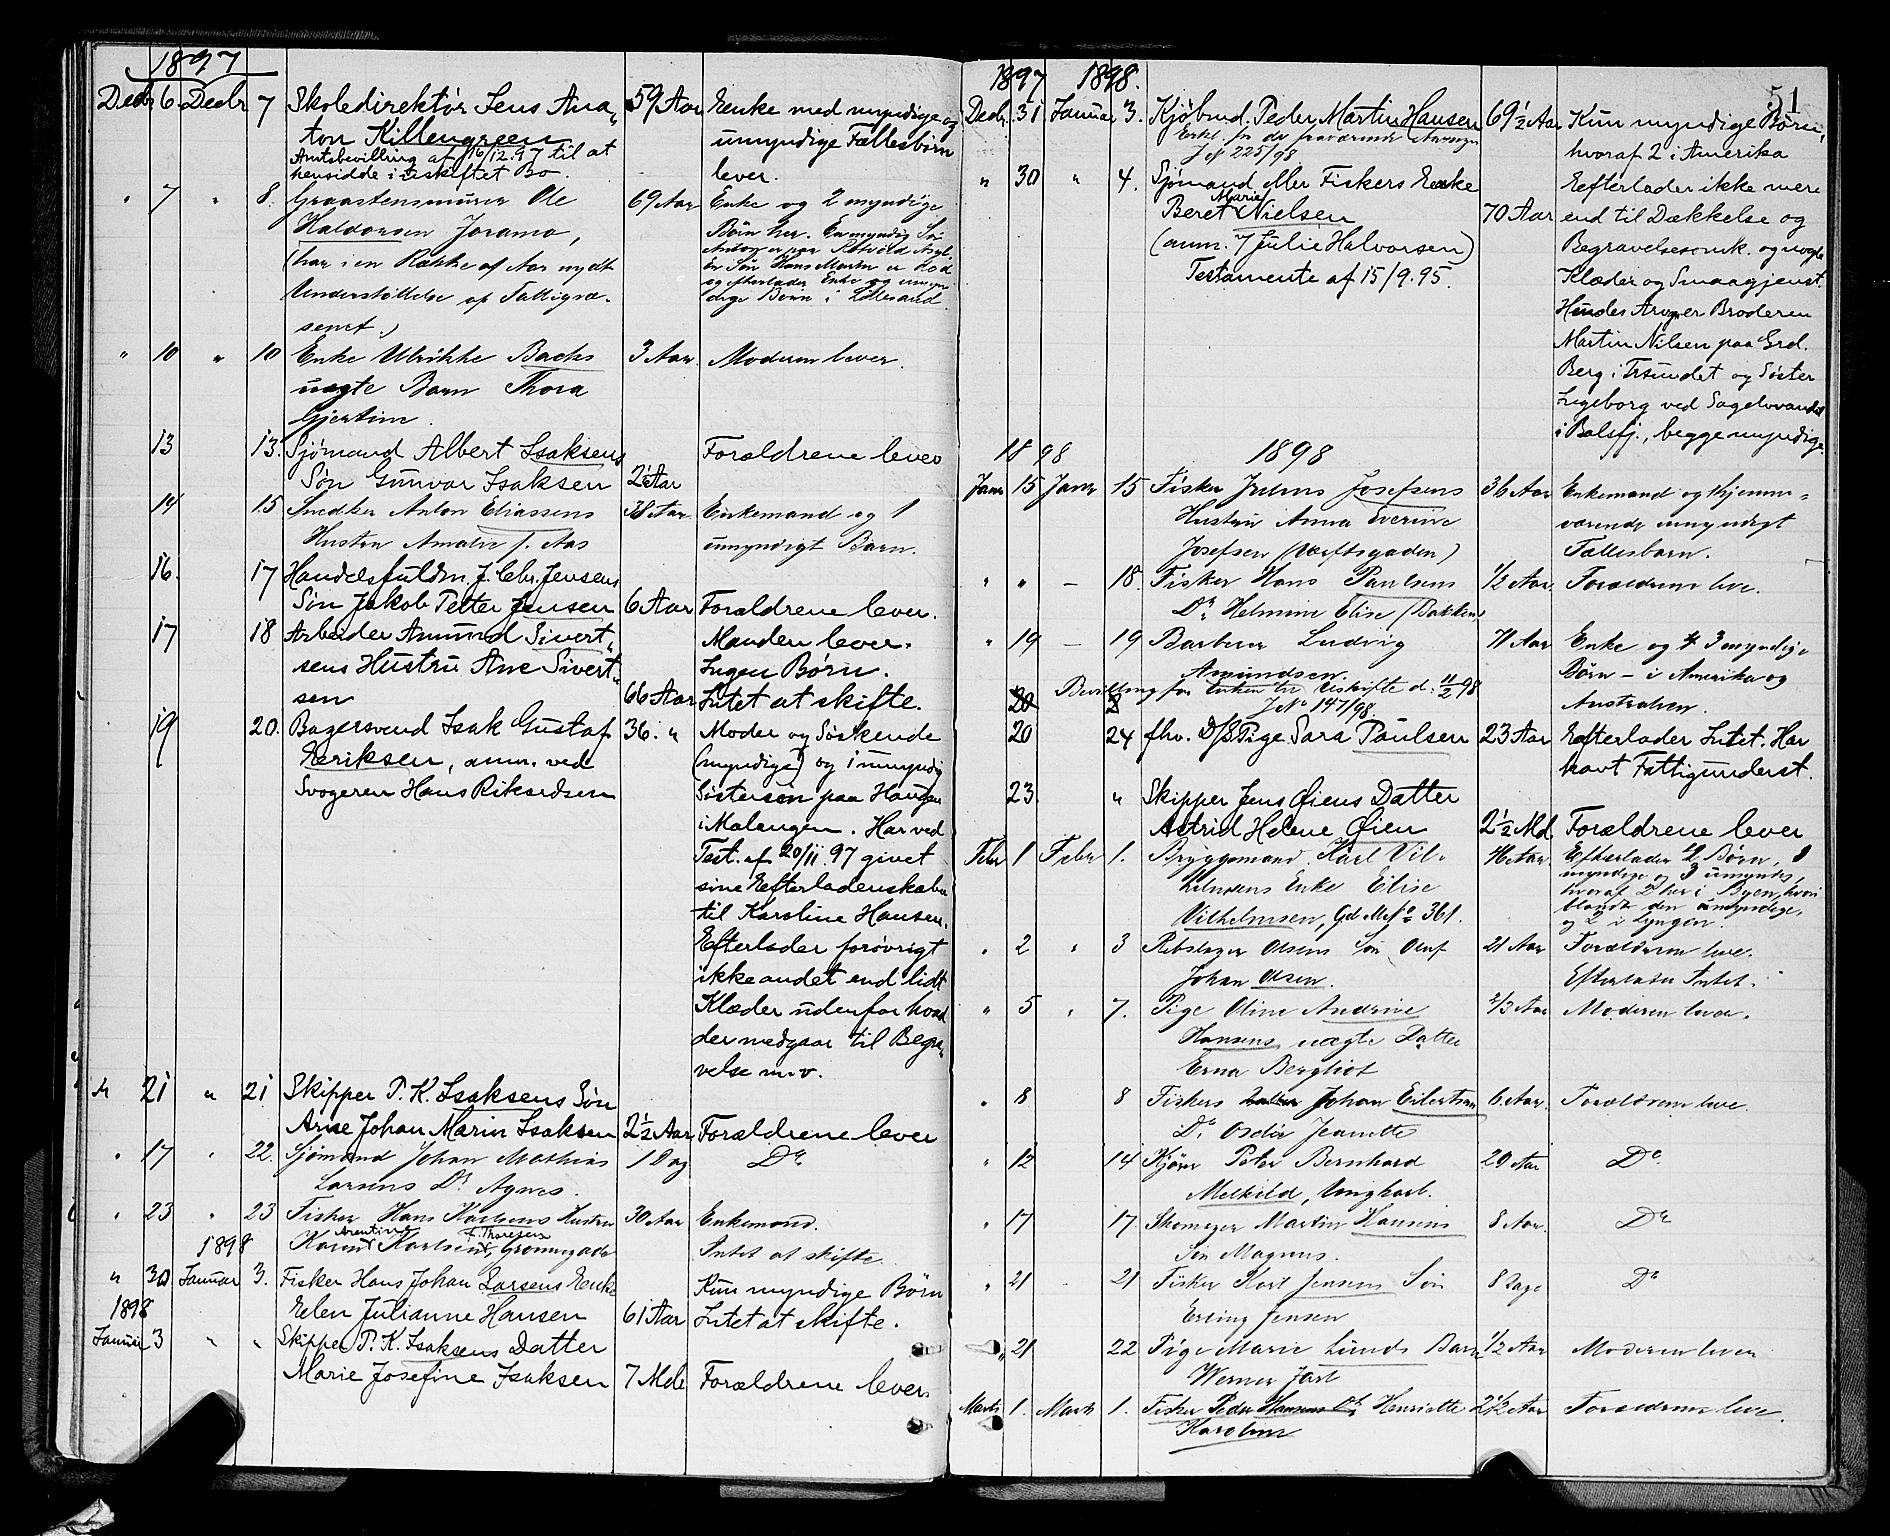 1897
Decbr 6 Decbr 7 Skoledirektør Jens Ana- 59 Aar Enke med myndige og
ton Killengreen umyndige Fællesbörn
Amtsbevilling af 16/12.97 til at lever.
hensidde i uskiftet Bo.
" 7 " 8. Graastensmurer Ole 69 Aar Enke og 2 myndige
Haldorsen Joramo, Börn her. En myndig Sön
(har i en Række af Aar nydt En Sön Hans Martin er död
Understöttelse af Fattigvæ- og efterlader Enke og umyn-
senet.) dige Börn i Lillesand
" 10 " 10 Enke Ulrikke Backs 3 Aar. Moderen lever.
uægte Barn Thora
Gjertine.
13 13. Sjømand Albert Isaksens Forældrene lever
Søn Gunvar Isaksen 2 Aar
14 15 Snedker Anton Eliassens 38 Aar Enkemand og 1
Hustru Amalie f. Aas umyndigt Barn.
16. 17 Handelsfuldm. J. Chr. Jensens
Søn Jakob Petter Jensen 6 Aar Forældrene lever.
17 18 Arbeider Amund Sivert- Manden lever.
sens Hustru Ane Sivert- Ingen Børn.
sen 66 Aar Intet at skifte.
19 20. Bagersvend Isak Gustaf 36. " Moder og Søskende
Eeriksen, anm. ved (myndige) og 1 umyndig
Svogeren Hans Rikardsen Søstersøn paa Haugen
i Malangen. Har ved
Test. af 20/11.97 givet
sine Efterladenskaber
til Karoline Hansen.
Efterlader forøvrigt
ikke andet end lidt
Klæder udenfor hvad
der medgaar til Begra-
velse m.v.
" 21 " 21 Skipper P. K. Isaksens Søn
Arne Johan Marin Isaksen 2½ Aar Forældrene lever
" 17 " 22. Sjømand Johan Mathias 1 Dag Do
Larsens Dr. Agnes.
" 23 " 23 Fisker Hans Karlsens Hustru 30 Aar Enkemand.
1898 Karen Arentine Karlsen, f. Thoresen Grönnegaden Intet at skifte
" 30 Januar 3. Fisker Hans Johan Larsens Enke Kun myndige Børn
1898 Elen Julianne Hansen 61 Aar Intet at skifte.
Januar 3 " " Skipper P. K. Isaksens Datter
Marie Josefine Isaksen 7 Mdr Forældrene lever
51
1897 1898.
Decbr. 31 Januar 3. Kjøbmd. Peder Martin Hansen 69½ Aar Kun myndige Børn,
hvoraf 2 i Amerika
J N 225/98
" 30 " 4. Sjømand eller Fiskers Enke Efterlader ikke mere
Beret Marie Nielsen 70 Aar end til Dækkelse og
(anm. af Julie Halvorsen) Begravelsesomk. og nogle
Testamente af 15/9.95. Klæder og Smaagjenst.
Hendes Arver er Broderen
Martin Nilsen paa Grd.
Berg i Trsundet og Søster
Ingeborg ved Sagelvvandet
i Balsfj., begge myndige.
1898 1898
Janr 15 Janr 15 Fisker Julius Josefsens 36 Aar Enkemand og hjemme-
Hustru Anna Everine værende umyndigt
Josefsen (Værftsgaden) Fællesbarn.
" " - 18. Fisker Hans Paulsens ½ Aar. Forældrene leve.
Dr. Helmine Elise (Bakken)
" 19 - 19 Barberer Ludvig 71 Aar Enke og 3 myndige
Amundsen. Börn - i Amerika og
Bevilling for Enken til Uskifte d: 11/2 98 Australien.
J No 147/98
20 24 fhv. D/S Pige Sara Paulsen 23 Aar Efterlader Intet. Har
havt Fattigunderst.
23 " Skipper Jens Øiens Datter
Astrid Helene Øien 2½ Md. Forældrene lever
Febr 1 Febr 1. Bryggemand Karl Vil- Efterlader 4 Børn, 1
helmsens Enke Elise myndige og 3 umyndige,
Vilhelmsen, hvoraf 2 her i Byen, hvori-
blandt den umyndige,
og 2 i Lyngen.
" 2 " 3 Rebslager Olsens Sön Olaf 21 Aar Forældrene leve.
Johan Olsen. Efterlader Intet.
" 5 " 7. Pige Oline Andrine 2/3 Aar Moderen lever.
Hansens uægte Datter
Erna Bergliot
" 8 8 Fiskers Johan Eilertsen 6 Aar. Forældrene leve.
Dr. Jeanette
" 12 14 Kjörer Peter Bernhard 29 Aar Do
Melkild, Ungkarl.
" 17 17. Skomager Martin Hansens 8 Aar. Do
Sön Magnus.
" 21 - 21 Fisker Karl Jensens Sön 8 Dage Do
Erling Jensen
" 21 22 Pige Marie Lunds Barn ½ Aar Moderen lever
Werner Jarl
Marts 1. Marts 1. Fisker Peder Hansens Dr. Henriette 2½ Aar Forældrene leve.
Karoline